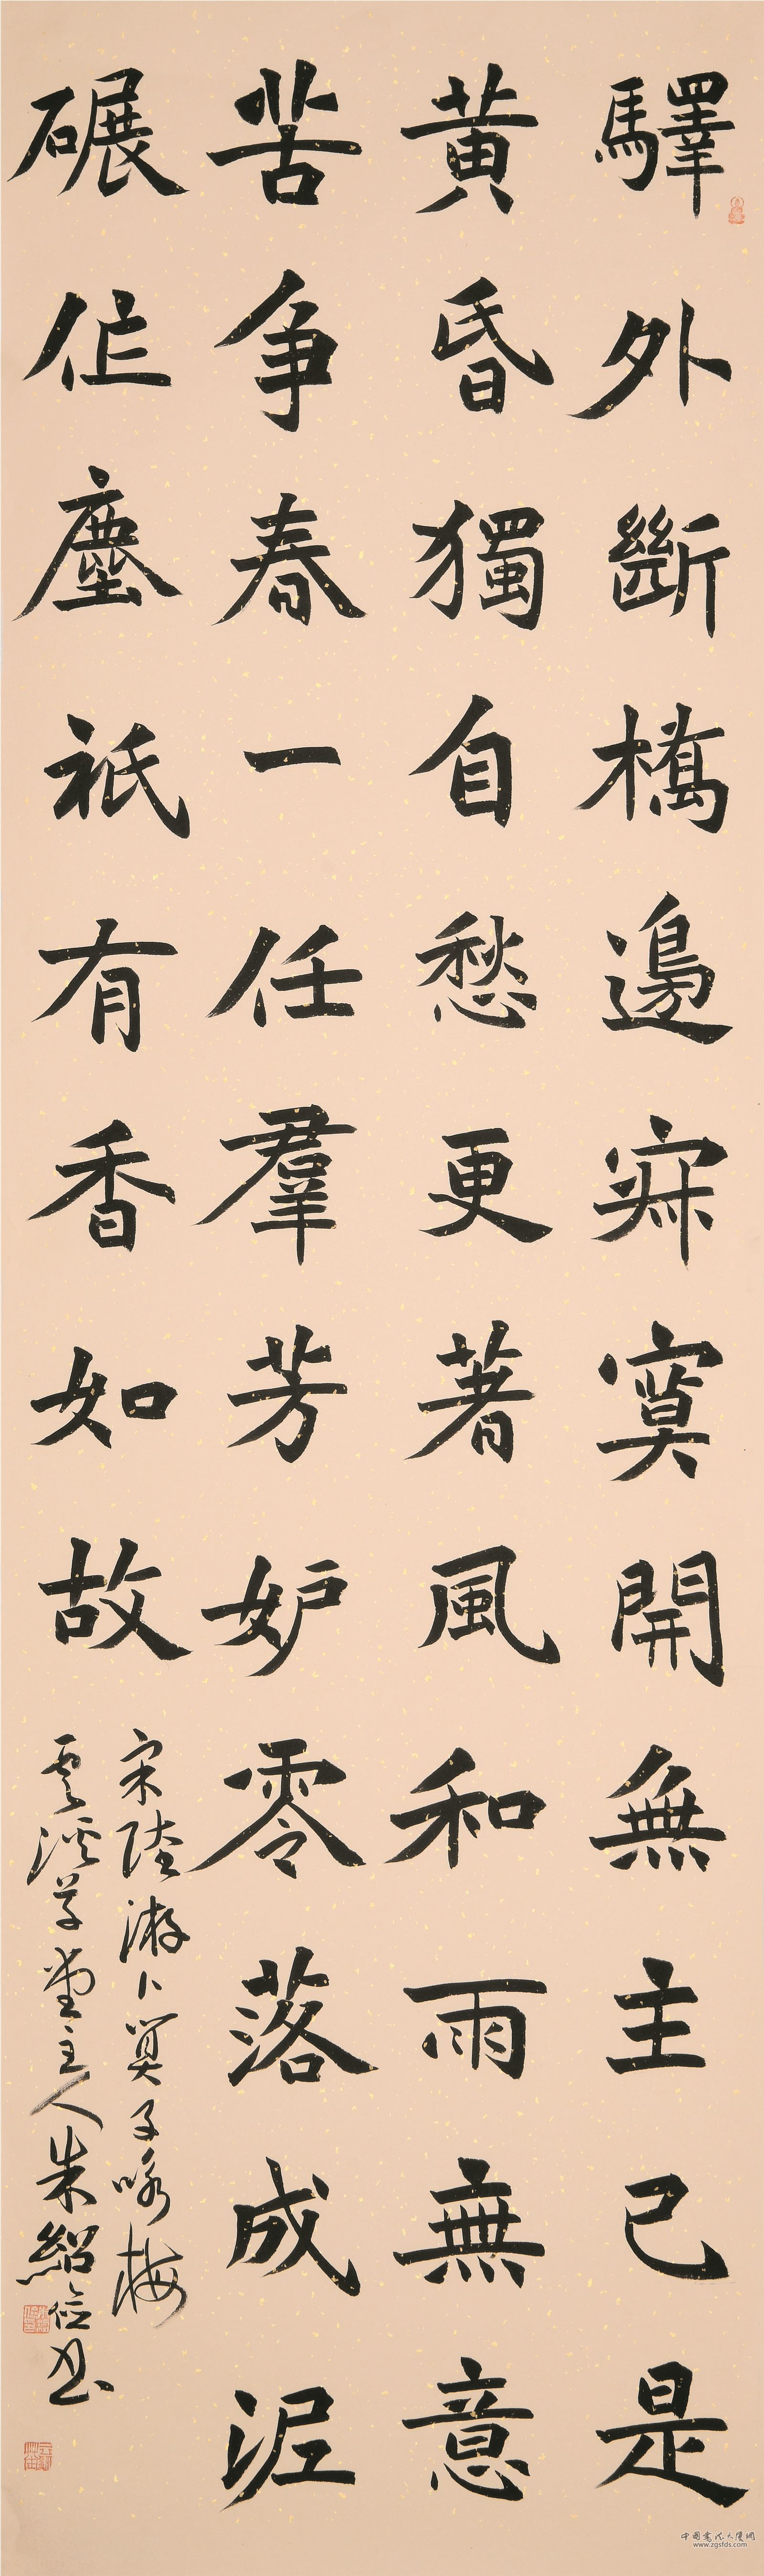 驛外斷橋邊寂寞開無主已是
黃昏獨自愁更著風和雨無意
苦爭春一任羣芳妒零落成泥
碾作塵祇有香如故
宋陸游卜算子咏梅
雲溪草堂主人朱紹俭书
中国书法大厦网
www.zgsfds.com